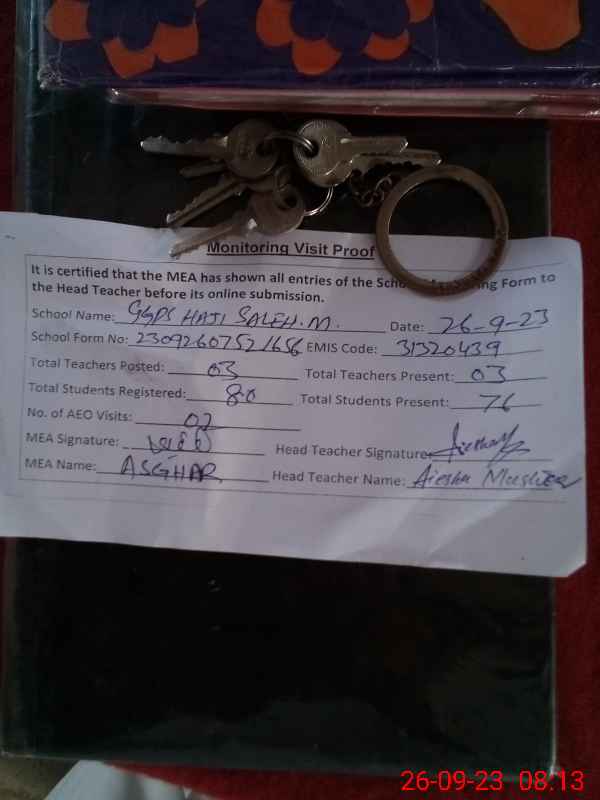 Monitoring Visit Proof
It is certified that the MEA has shown all entries of the Form to
the Head Teacher before its online submission.
School Name: GGPS HAJI SALEH.M. Date: 26-9-23
School Form No: 23092607521656 EMIS Code: 31320439
Total Teachers Posted: 03 Total Teachers Present: 03
Total Students Registered: 80 Total Students Present: 76
No. of AEO Visits: 02
MEA Signature: Head Teacher Signature
MEA Name: ASGHAR Head Teacher Name: Aiesha
26-09-23 08:13